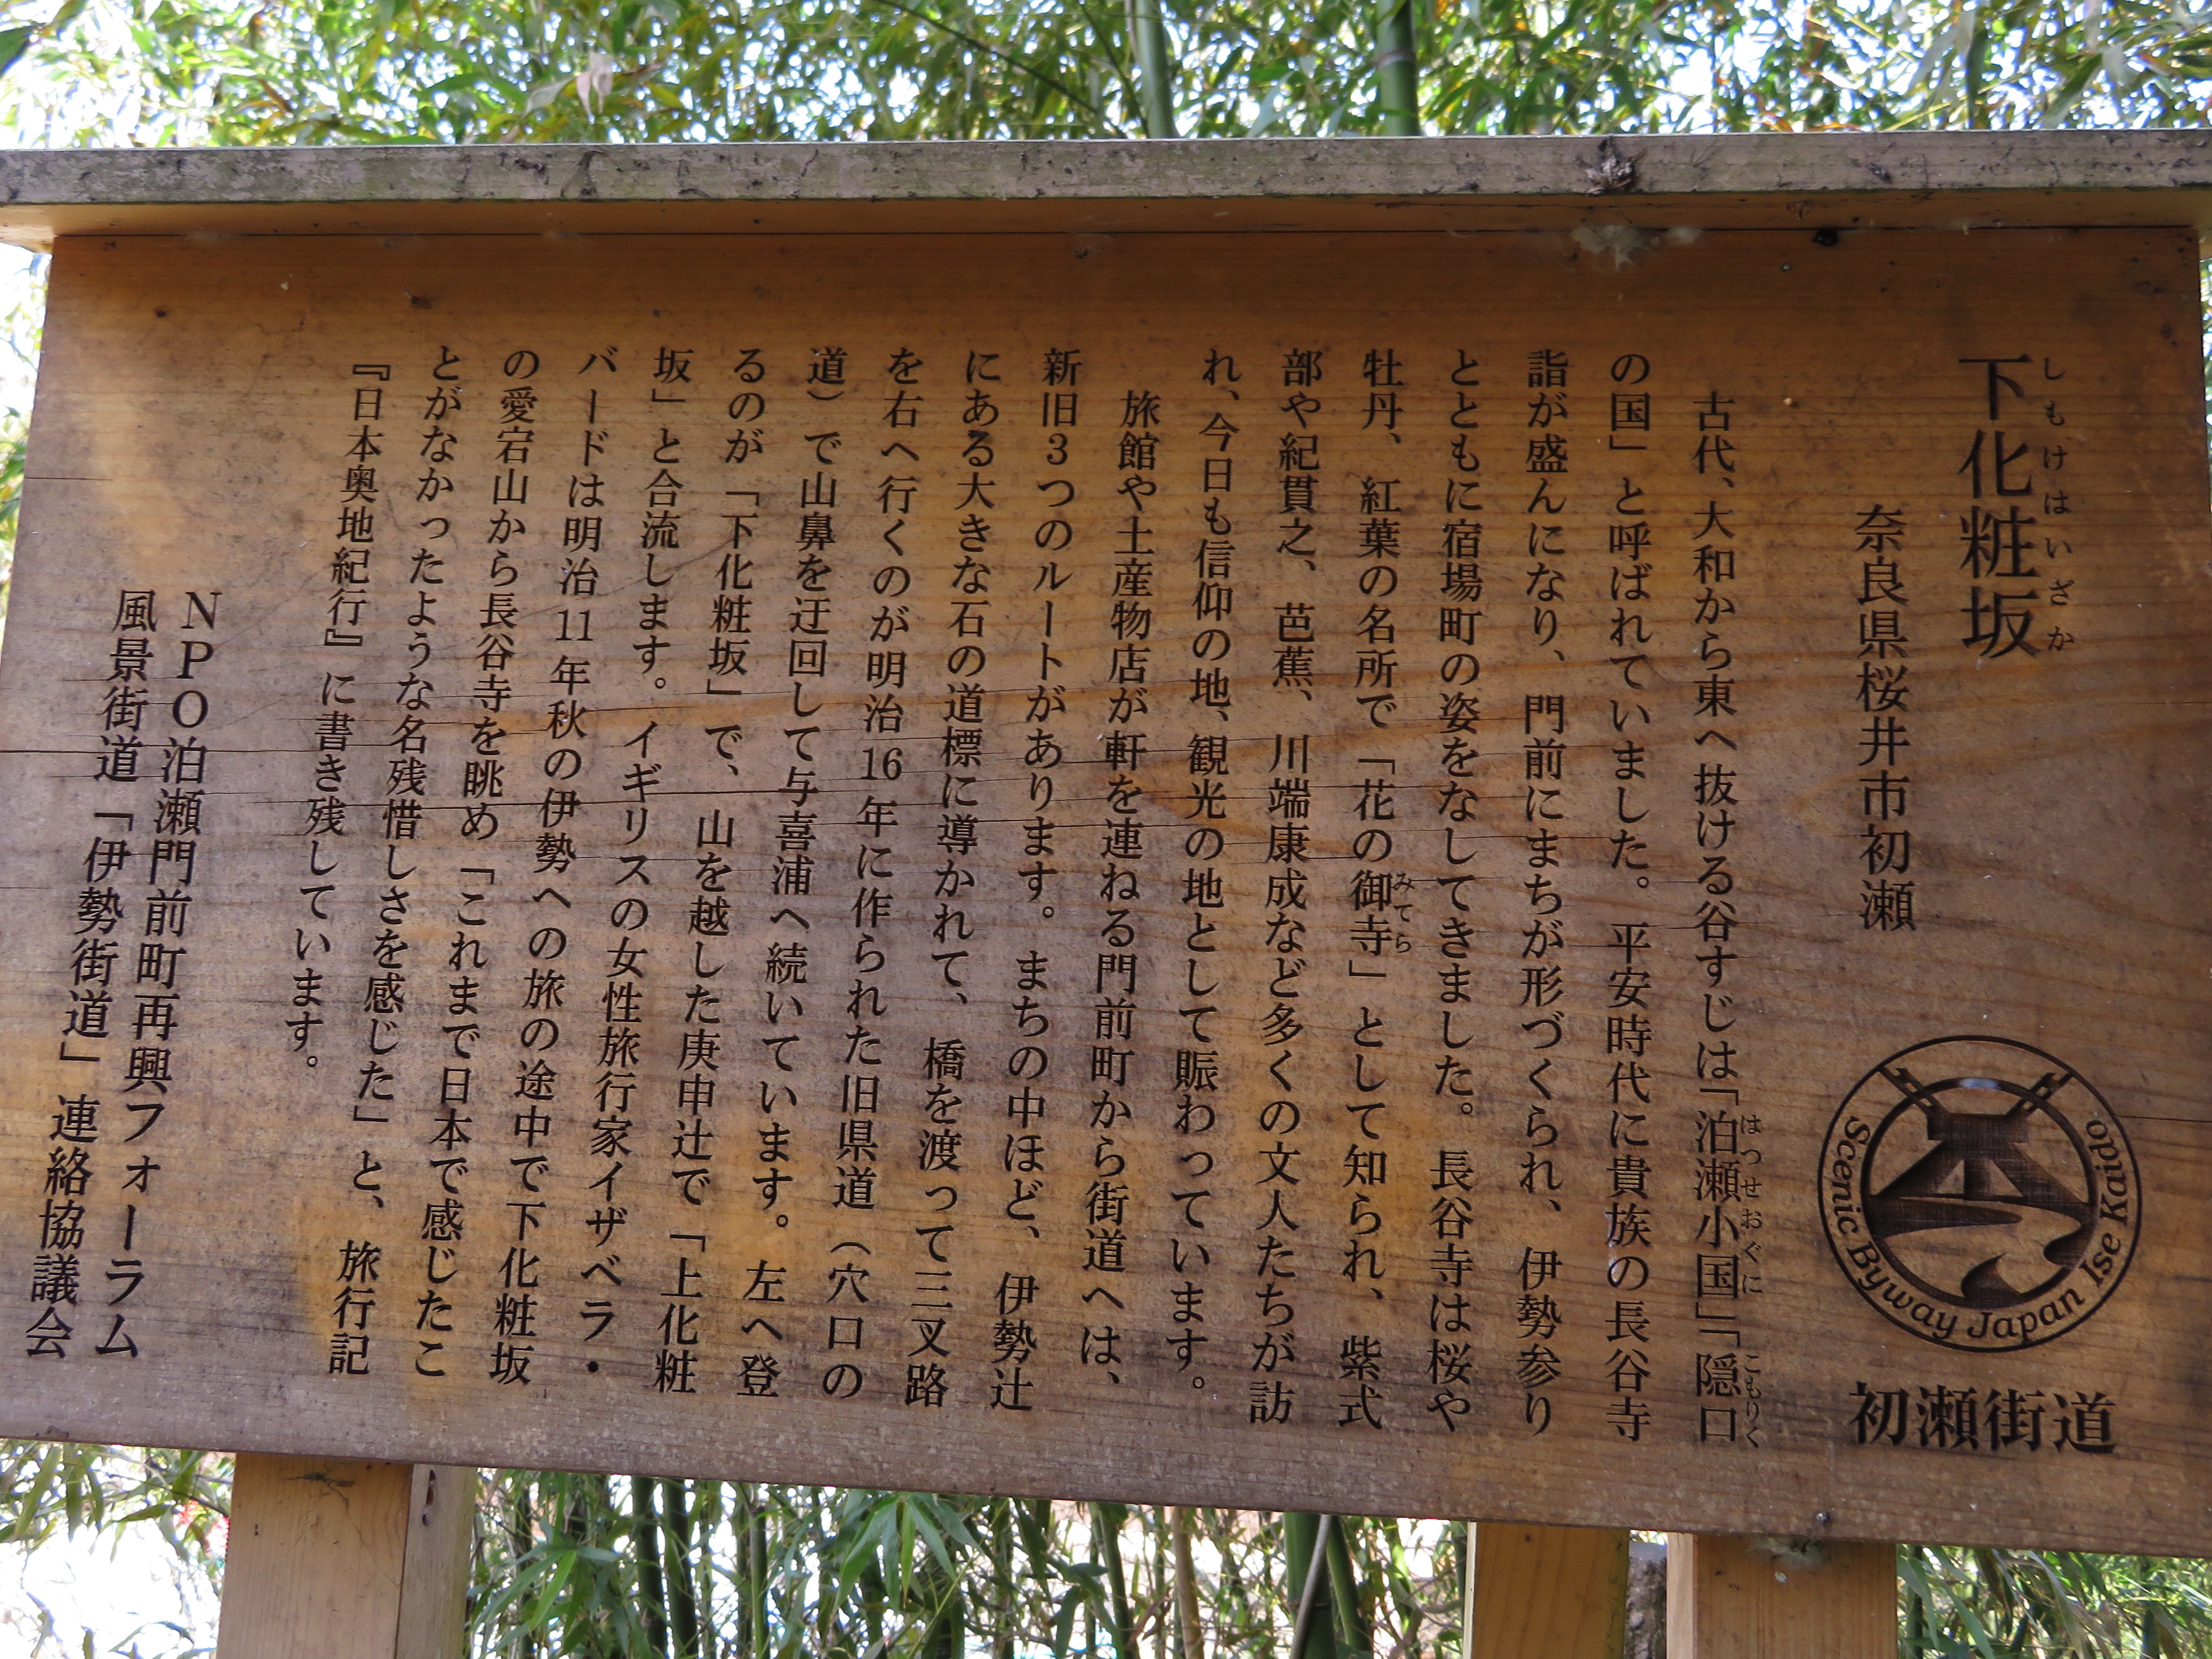 下化粧坂
しもけはいざか
奈良県桜井市初瀬
Scenic Byway Japan Ise Kaido
初瀬街道
古代、大和から東へ抜ける谷すじは「泊瀬小国」「隠口
はつせおぐに
こもりく
の国」と呼ばれていました。平安時代に貴族の長谷寺
詣が盛んになり、門前にまちが形づくられ、伊勢参り
とともに宿場町の姿をなしてきました。長谷寺は桜や
牡丹、紅葉の名所で「花の御寺」として知られ、紫式
みてら
部や紀貫之、芭蕉、川端康成など多くの文人たちが訪
れ、今日も信仰の地、観光の地として賑わっています。
旅館や土産物店が軒を連ねる門前町から街道へは、
新旧3つのルートがあります。まちの中ほど、伊勢辻
にある大きな石の道標に導かれて、橋を渡って三叉路
を右へ行くのが明治16年に作られた旧県道（穴口の
道）で山鼻を迂回して与喜浦へ続いています。左へ登
るのが「下化粧坂」で、山を越した庚申辻で「上化粧
坂」と合流します。イギリスの女性旅行家イザベラ・
バードは明治11年秋の伊勢への旅の途中で下化粧坂
の愛宕山から長谷寺を眺め「これまで日本で感じたこ
とがなかったような名残惜しさを感じた」と、旅行記
『日本奥地紀行』に書き残しています。
NPO泊瀬門前町再興フォーラム
風景街道「伊勢街道」連絡協議会